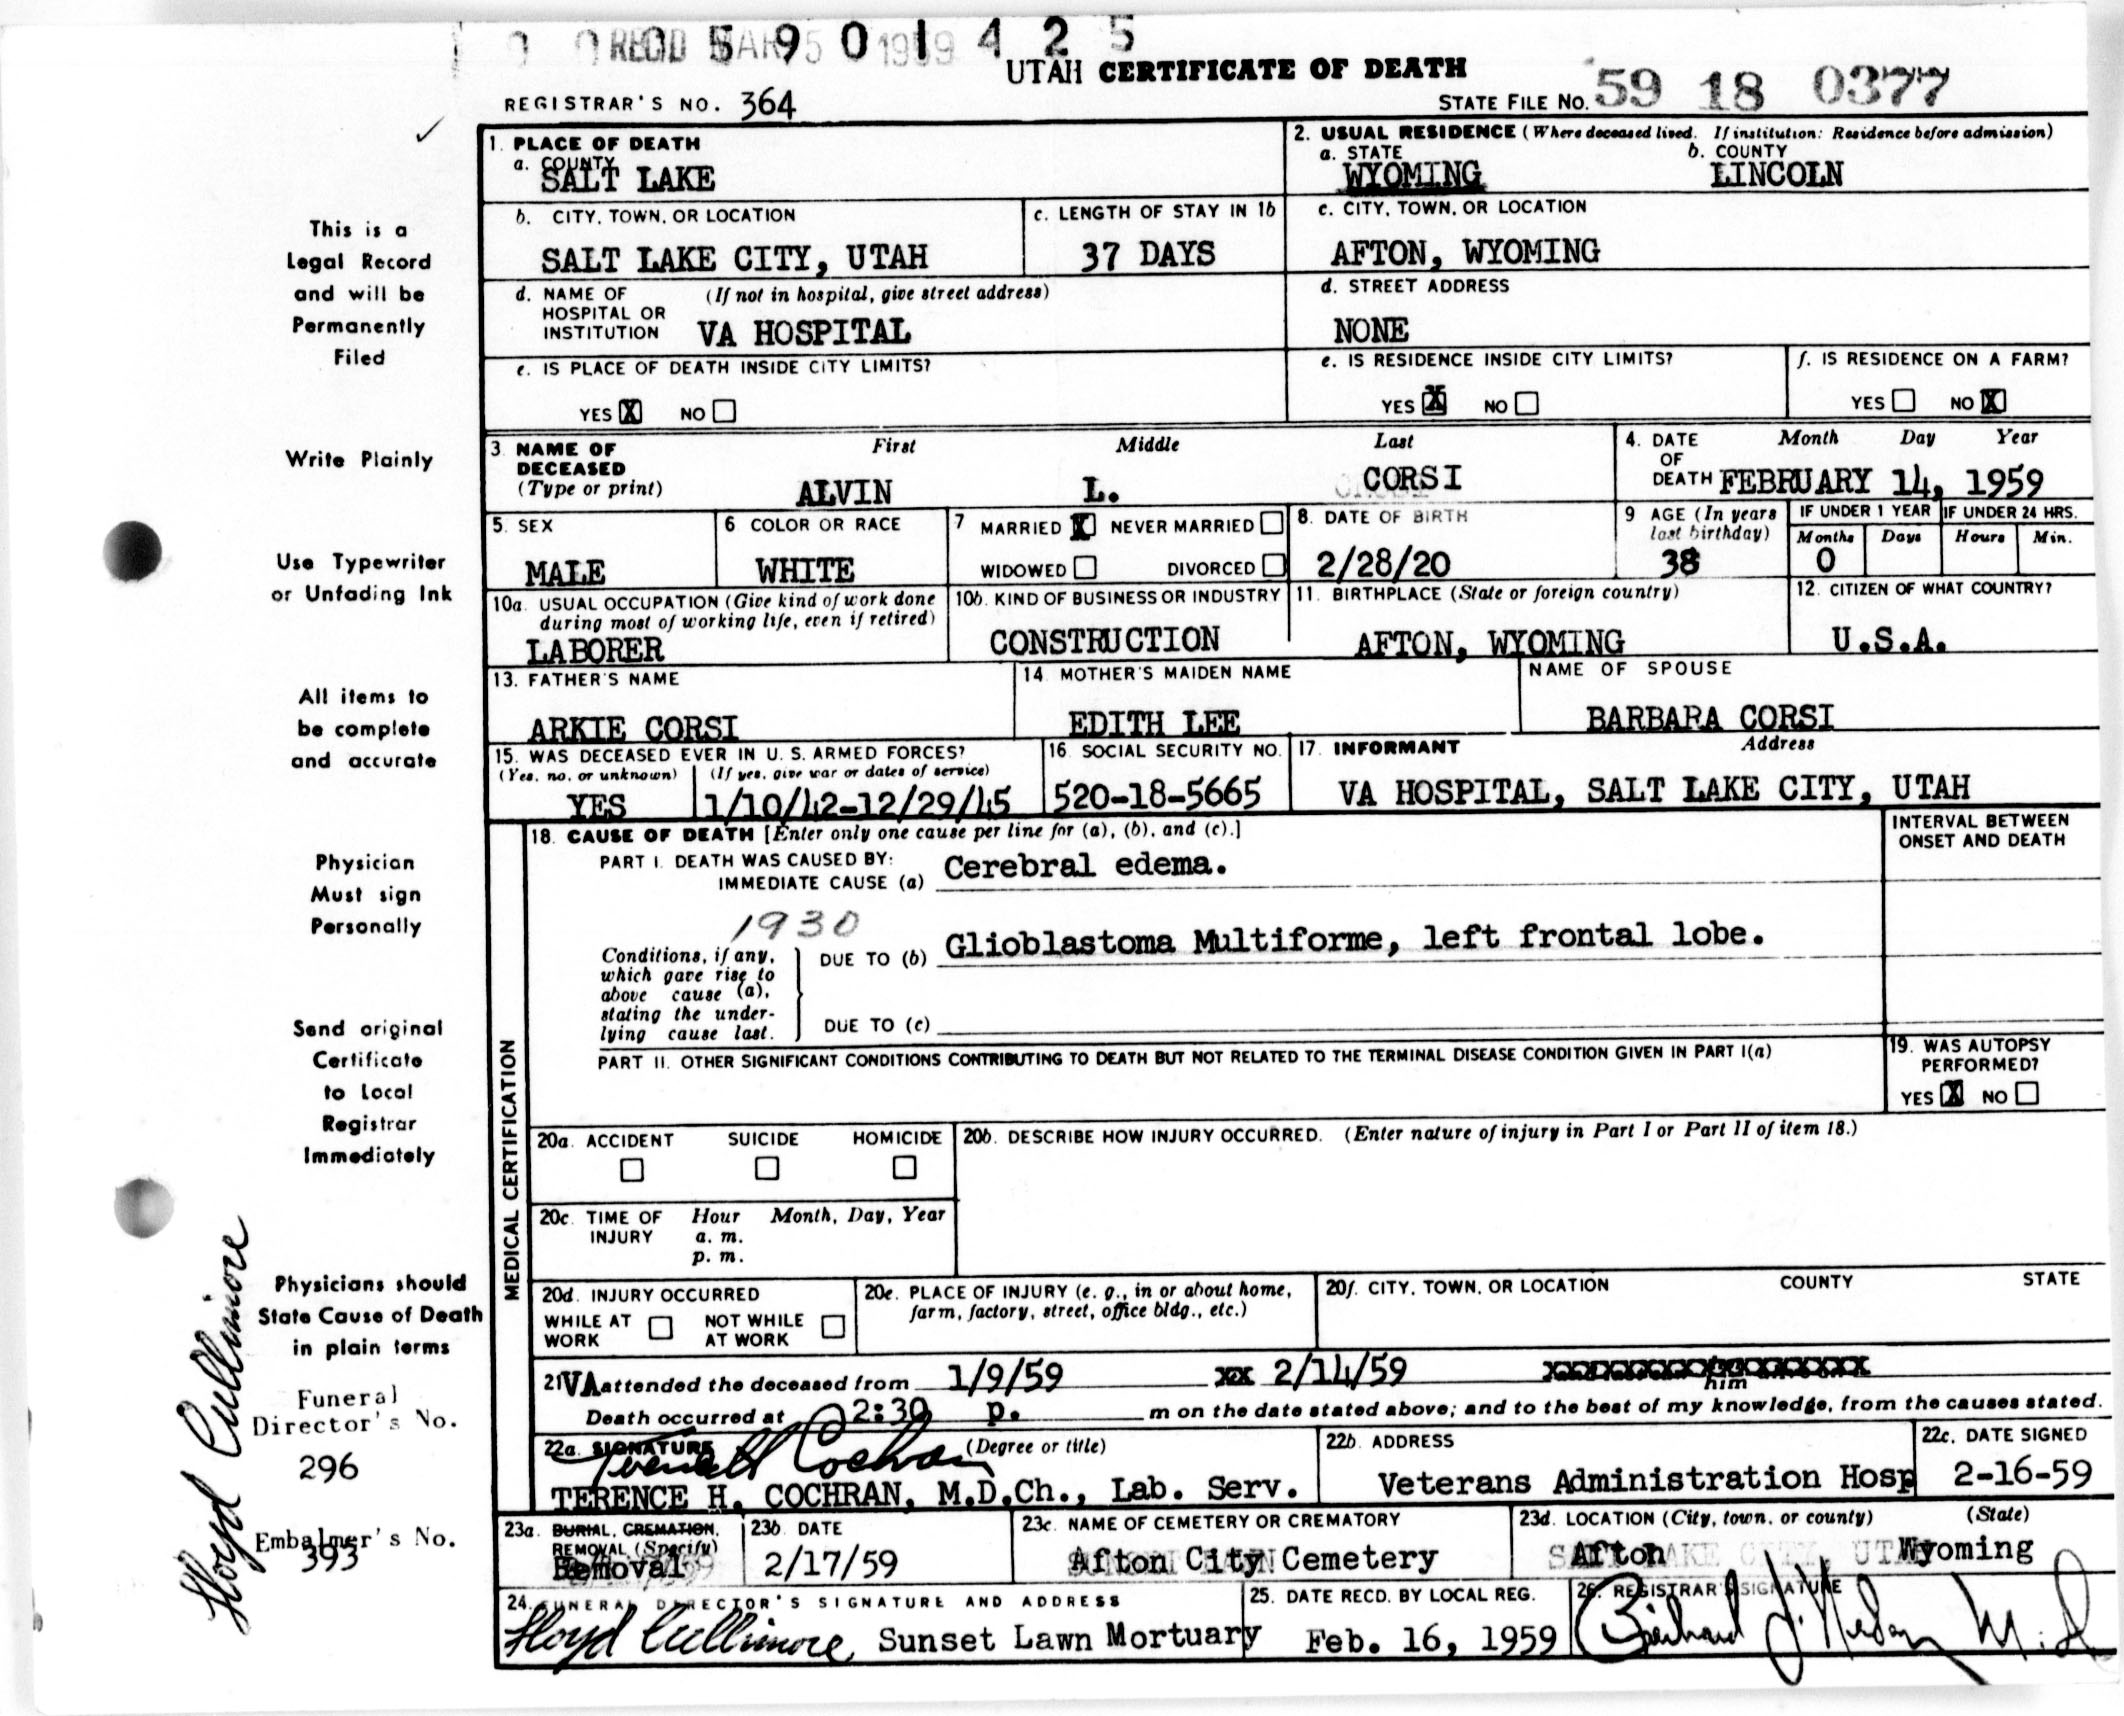 REC'D MAR 5 1959
5 9 0 1 4 2 5
UTAH CERTIFICATE OF DEATH
REGISTRAR'S NO. 364
STATE FILE NO. 59 18 0377
1. PLACE OF DEATH
a. COUNTY
SALT LAKE
2. USUAL RESIDENCE (Where deceased lived. If institution: Residence before admission)
a. STATE b. COUNTY
WYOMING LINCOLN
b. CITY, TOWN, OR LOCATION
SALT LAKE CITY, UTAH
c. LENGTH OF STAY IN 1b
37 DAYS
c. CITY, TOWN, OR LOCATION
AFTON, WYOMING
d. NAME OF (If not in hospital, give street address)
HOSPITAL OR
INSTITUTION VA HOSPITAL
d. STREET ADDRESS
NONE
e. IS PLACE OF DEATH INSIDE CITY LIMITS?
YES X NO
e. IS RESIDENCE INSIDE CITY LIMITS?
YES X NO
f. IS RESIDENCE ON A FARM?
YES NO X
3. NAME OF DECEASED (Type or print)
First Middle Last
ALVIN L. CORSI
4. DATE OF DEATH
Month Day Year
FEBRUARY 14, 1959
5. SEX
MALE
6 COLOR OR RACE
WHITE
7 MARRIED X NEVER MARRIED
WIDOWED DIVORCED
8. DATE OF BIRTH
2/28/20
9 AGE (In years last birthday)
38
IF UNDER 1 YEAR
Months Days
0
IF UNDER 24 HRS.
Hours Min.
10a. USUAL OCCUPATION (Give kind of work done
during most of working life, even if retired)
LABORER
10b. KIND OF BUSINESS OR INDUSTRY
CONSTRUCTION
11. BIRTHPLACE (State or foreign country)
AFTON, WYOMING
12. CITIZEN OF WHAT COUNTRY?
U.S.A.
13. FATHER'S NAME
ARKIE CORSI
14. MOTHER'S MAIDEN NAME
EDITH LEE
NAME OF SPOUSE
BARBARA CORSI
15. WAS DECEASED EVER IN U. S. ARMED FORCES?
(Yes, no, or unknown) (If yes, give war or dates of service)
YES 1/10/42-12/29/45
16 SOCIAL SECURITY NO.
520-18-5665
17. INFORMANT Address
VA HOSPITAL, SALT LAKE CITY, UTAH
MEDICAL CERTIFICATION
18. CAUSE OF DEATH [Enter only one cause per line for (a), (b), and (c).]
INTERVAL BETWEEN
ONSET AND DEATH
PART I. DEATH WAS CAUSED BY:
IMMEDIATE CAUSE (a) Cerebral edema.
1930
Conditions, if any,
which gave rise to
above cause (a),
stating the under-
lying cause last.
DUE TO (b) Glioblastoma Multiforme, left frontal lobe.
DUE TO (c)
PART II. OTHER SIGNIFICANT CONDITIONS CONTRIBUTING TO DEATH BUT NOT RELATED TO THE TERMINAL DISEASE CONDITION GIVEN IN PART I(a)
19. WAS AUTOPSY
PERFORMED?
YES X NO
20a. ACCIDENT SUICIDE HOMICIDE
20b. DESCRIBE HOW INJURY OCCURRED. (Enter nature of injury in Part I or Part II of item 18.)
20c. TIME OF INJURY
Hour Month, Day, Year
a. m.
p. m.
20d. INJURY OCCURRED
WHILE AT WORK NOT WHILE AT WORK
20e. PLACE OF INJURY (e. g., in or about home,
farm, factory, street, office bldg., etc.)
20f. CITY, TOWN, OR LOCATION COUNTY STATE
21 VA attended the deceased from 1/9/59 xx 2/14/59
him
Death occurred at 2:30 p. m on the date stated above; and to the best of my knowledge, from the causes stated.
22a. SIGNATURE (Degree or title)
Terence H Cochran
TERENCE H. COCHRAN, M.D.Ch., Lab. Serv.
22b. ADDRESS
Veterans Administration Hosp
22c. DATE SIGNED
2-16-59
23a. BURIAL, CREMATION,
REMOVAL (Specify)
Removal
23b. DATE
2/17/59
23c. NAME OF CEMETERY OR CREMATORY
Afton City Cemetery
23d. LOCATION (City, town, or county) (State)
Afton Wyoming
24. FUNERAL DIRECTOR'S SIGNATURE AND ADDRESS
Floyd Cullimore Sunset Lawn Mortuary
25. DATE RECD. BY LOCAL REG.
Feb. 16, 1959
26. REGISTRAR'S SIGNATURE
M.D.
This is a
Legal Record
and will be
Permanently
Filed
Write Plainly
Use Typewriter
or Unfading Ink
All items to
be complete
and accurate
Physician
Must sign
Personally
Send original
Certificate
to Local
Registrar
Immediately
Physicians should
State Cause of Death
in plain terms
Funeral
Director's No.
296
Embalmer's No.
393
Floyd Cullimore